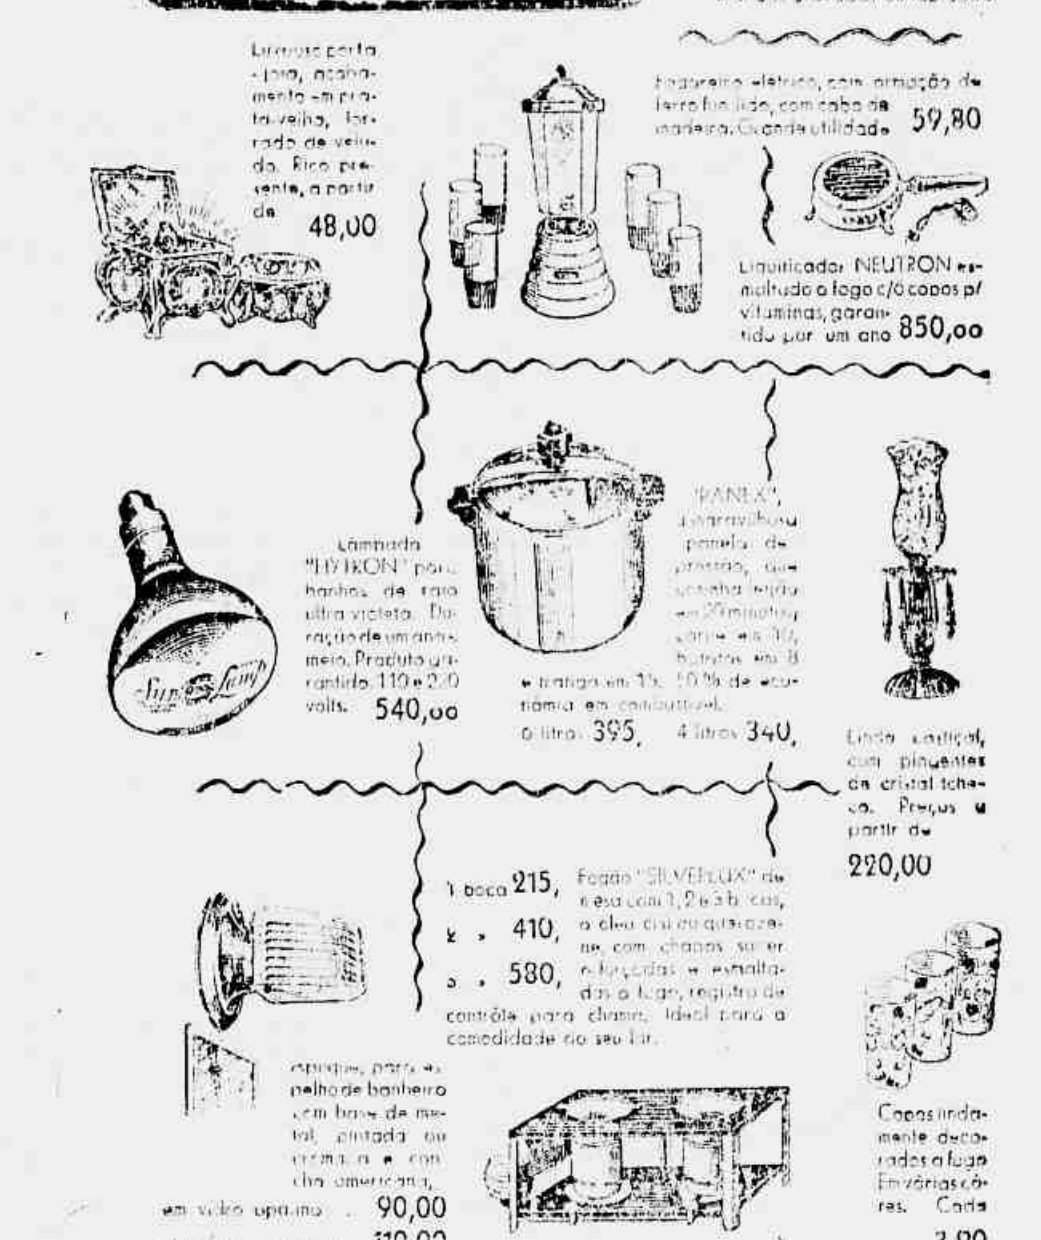 porta
-joia, acaba-
mento em pra-
ta-velha, for-
rado de velu-
do. Rico pre-
sente, a partir
de
48,00
Fogareiro elétrico, com armação de
ferro fundido, com cabo de
madeira. Grande utilidade 59,80
Liquificador NEUTRON es-
maltado a fogo c/6 copos p/
vitaminas, garan-
tido por um ano 850,00
Lâmpada
"HYTRON" para
banhos de raio
ultra violeta. Du-
ração de um ano e
meio. Produto ga-
rantido. 110 e 220
volts. 540,00
Lamp
"PANEX",
maravilhosa
panela de
pressão, que
cozinha feijão
em 20 minutos,
carne em 30,
batatas em 8
e frango em 15. 50% de eco-
nômia em combustível.
6 litros 395, 4 litros 340,
Lindo castiçal,
com pingentes
de cristal tche-
co. Preços a
partir de
220,00
1 boca 215,
2 » 410,
3 » 580,
Fogão "SILVERLUX" de
mesa com 1, 2 e 3 bocas,
a óleo cru ou queroze-
ne, com chapas super
reforçadas e esmalta-
das a fogo, registro de
contrôle para chama. Ideal para a
comodidade do seu lar.
para es-
pelho de banheiro
com base de me-
tal, pintada ou
cromada e con-
cha americana,
em vidro opalino . 90,00
110,00
Copos linda-
mente deco-
rados a fogo
Em várias cô-
res. Cada
3,90